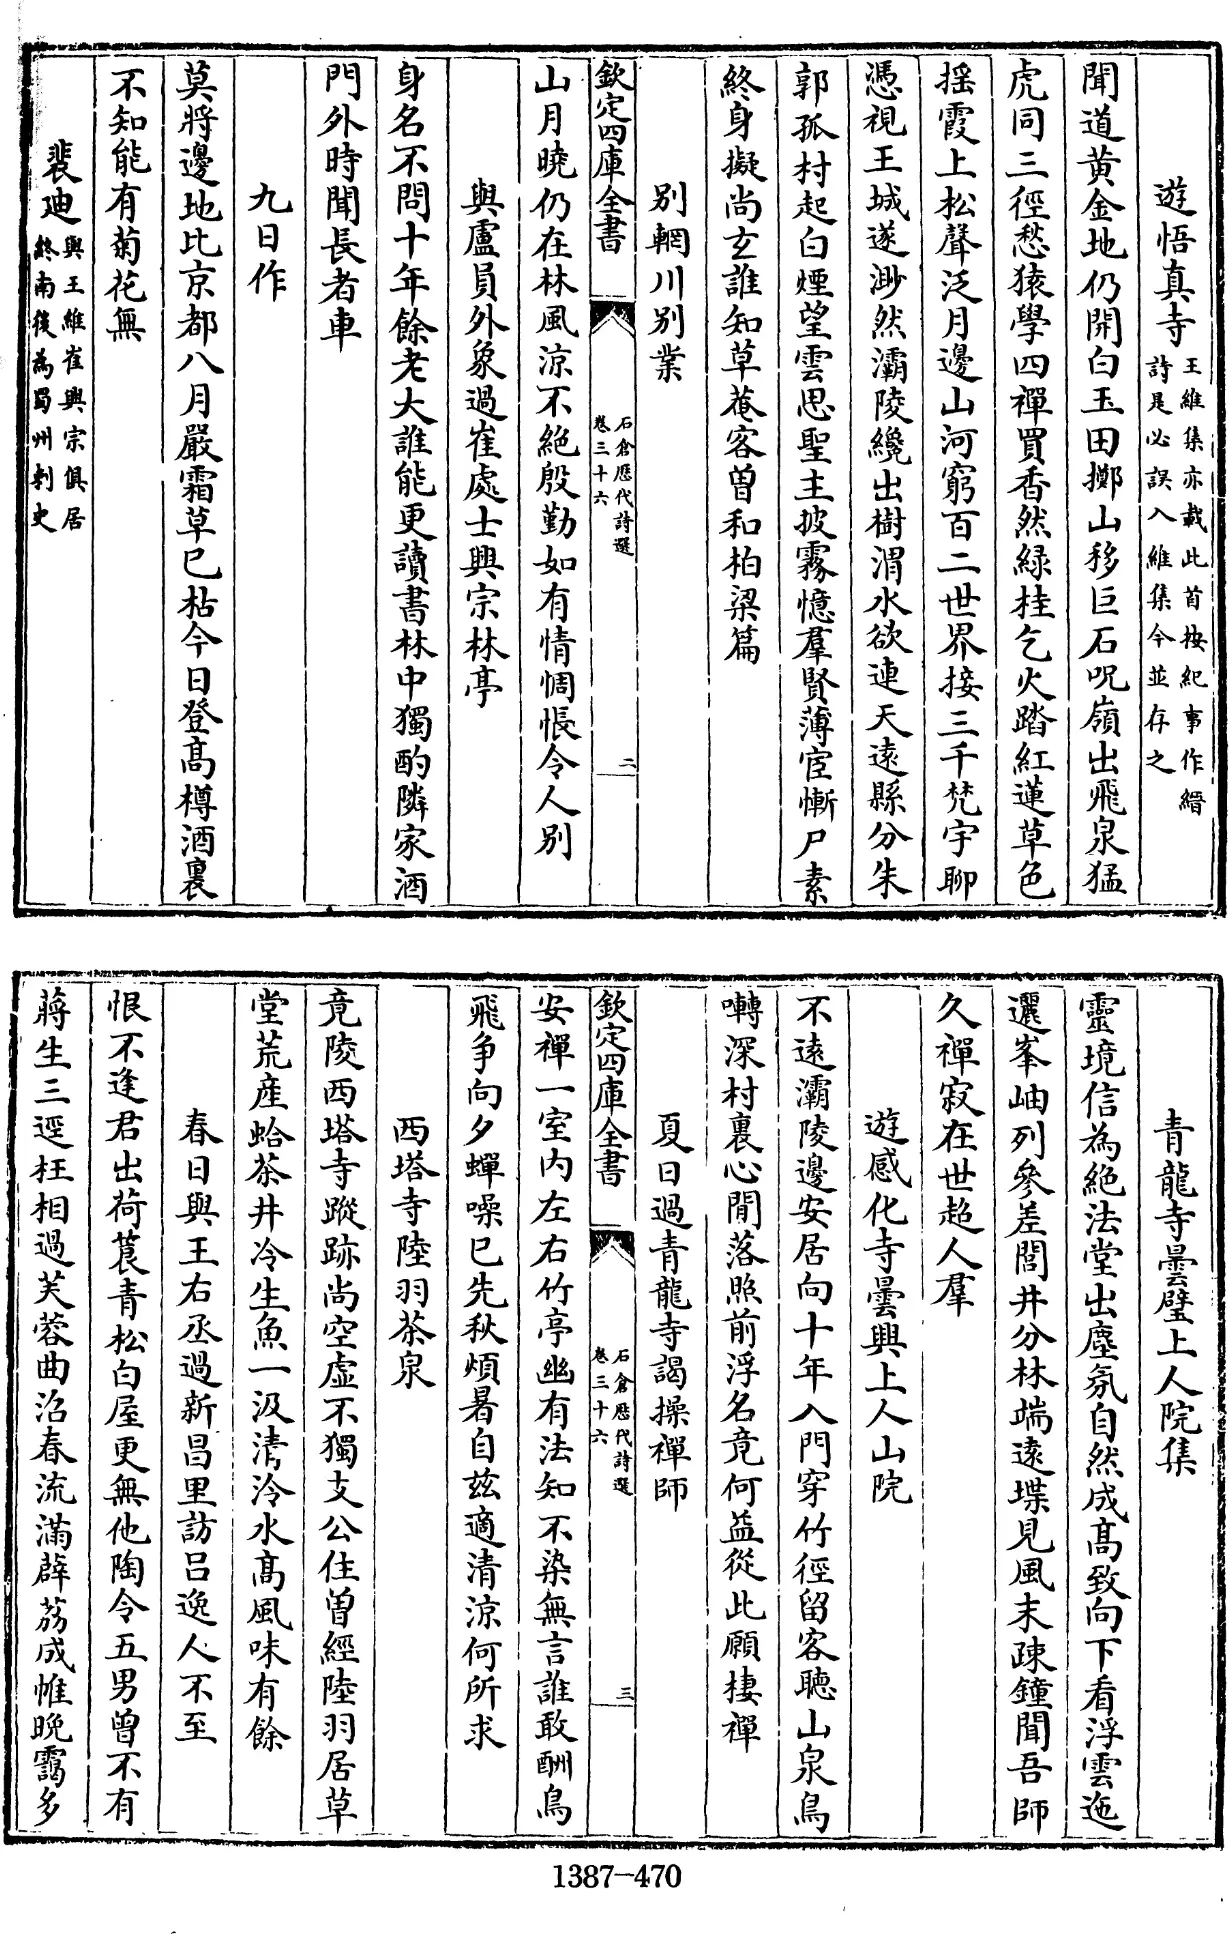 遊悟真寺王維集亦載此首按紀事作縉
詩是必誤入維集今並存之
聞道黄金地仍開白玉田擲山移巨石呪嶺出飛泉猛
虎同三徑愁猿學四禪買香然緑桂乞火踏紅蓮草色
揺霞上松聲泛月邊山河窮百二世界接三千梵宇聊
憑視王城遂渺然灞陵纔出樹渭水欲連天逺縣分朱
郭孤村起白煙望雲思聖主披霧憶羣賢薄宦慚尸素
終身擬尚玄誰知草菴客曽和柏梁篇
别輞川别業
欽定四庫全書
石倉歴代詩選
卷三十六
二
山月曉仍在林風涼不絶殷勤如有情惆悵令人别
與盧員外象過崔處士興宗林亭
身名不問十年餘老大誰能更讀書林中獨酌隣家酒
門外時聞長者車
九日作
莫將邊地比京都八月嚴霜草已枯今日登髙樽酒裏
不知能有菊花無
裴廸與王維崔興宗俱居
終南後為蜀州刺史
青龍寺曇璧上人院集
靈境信為絶法堂出塵氛自然成髙致向下看浮雲迤
邐峯岫列參差閭井分林端逺堞見風末疎鐘聞吾師
久禪寂在世超人羣
遊感化寺曇興上人山院
不逺灞陵邊安居向十年入門穿竹徑留客聴山泉鳥
囀深村裏心閒落照前浮名竟何益從此願棲禪
夏日過青龍寺謁操禪師
欽定四庫全書
石倉歴代詩選
卷三十六
三
安禪一室内左右竹亭幽有法知不染無言誰敢酬鳥
飛争向夕蟬噪已先秋煩暑自兹適清涼何所求
西塔寺陸羽茶泉
竟陵西塔寺蹤跡尚空虚不獨支公住曽經陸羽居草
堂荒産蛤茶井冷生魚一汲清泠水髙風味有餘
春日與王右丞過新昌里訪吕逸人不至
恨不逢君出荷蓑青松白屋更無他陶令五男曽不有
蔣生三逕枉相過芙蓉曲沼春流滿薜荔成帷晩靄多
1387-470